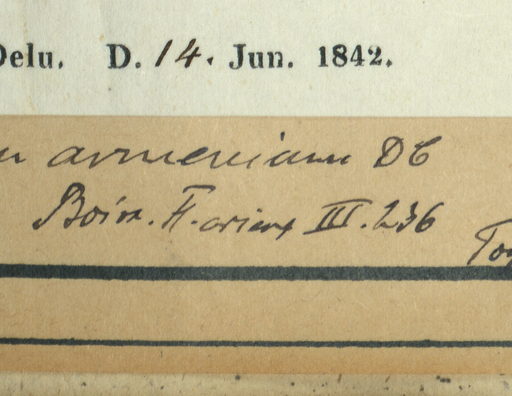 Delu. D. 14. Jun. 1842.
armenianum DC
Boiss. Fl. orient III. 236